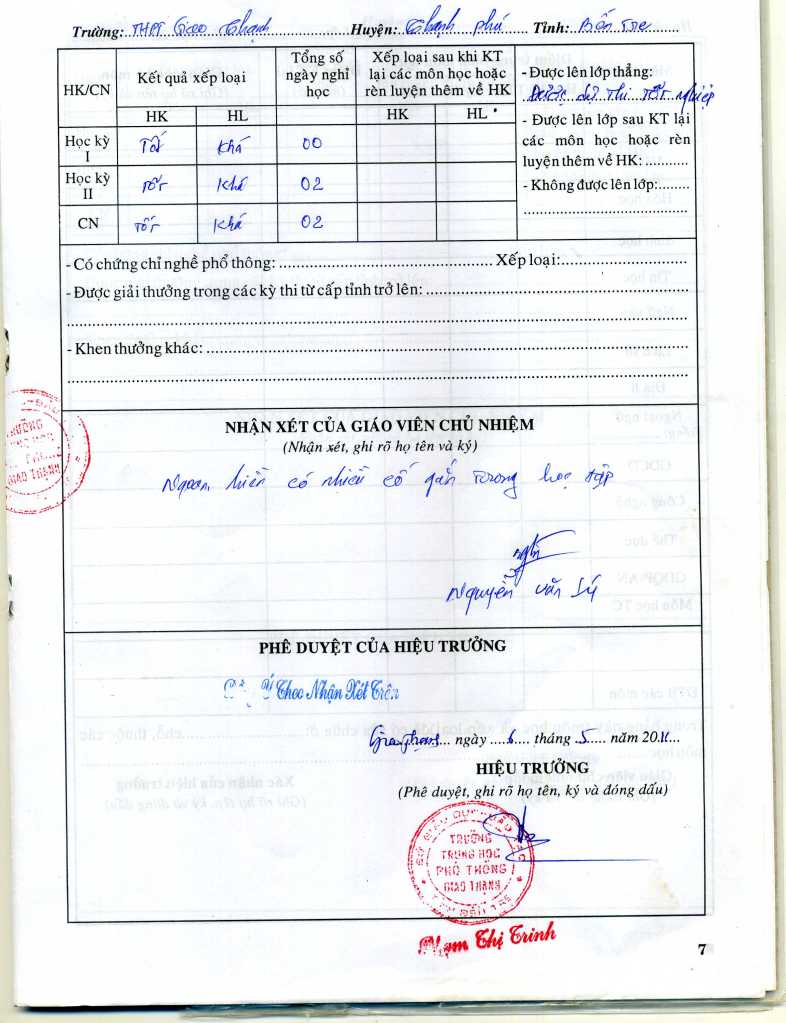 Trường: THPT Giao Thạnh Huyện: Thạnh Phú Tỉnh: Bến Tre
HK/CN
Kết quả xếp loại
Tổng số ngày nghỉ học
Xếp loại sau khi KT lại các môn học hoặc rèn luyện thêm về HK
HK HL HK HL
Học kỳ I Tốt Khá 00
Học kỳ II Tốt Khá 02
CN Tốt Khá 02
- Được lên lớp thẳng:
Được dự thi tốt nghiệp
- Được lên lớp sau KT lại
các môn học hoặc rèn
luyện thêm về HK:
- Không được lên lớp:
- Có chứng chỉ nghề phổ thông: Xếp loại:
- Được giải thưởng trong các kỳ thi từ cấp tỉnh trở lên:
- Khen thưởng khác:
NHẬN XÉT CỦA GIÁO VIÊN CHỦ NHIỆM
(Nhận xét, ghi rõ họ tên và ký)
Ngoan, hiền có nhiều cố gắn trong học tập
Nguyễn Văn Sý
PHÊ DUYỆT CỦA HIỆU TRƯỞNG
Ý Theo Nhận Xét Trên
Giao Thạnh ngày 6 tháng 5 năm 2011
HIỆU TRƯỞNG
(Phê duyệt, ghi rõ họ tên, ký và đóng dấu)
TRƯỜNG
TRUNG HỌC
PHỔ THÔNG
GIAO THẠNH
Phạm Thị Trinh
7